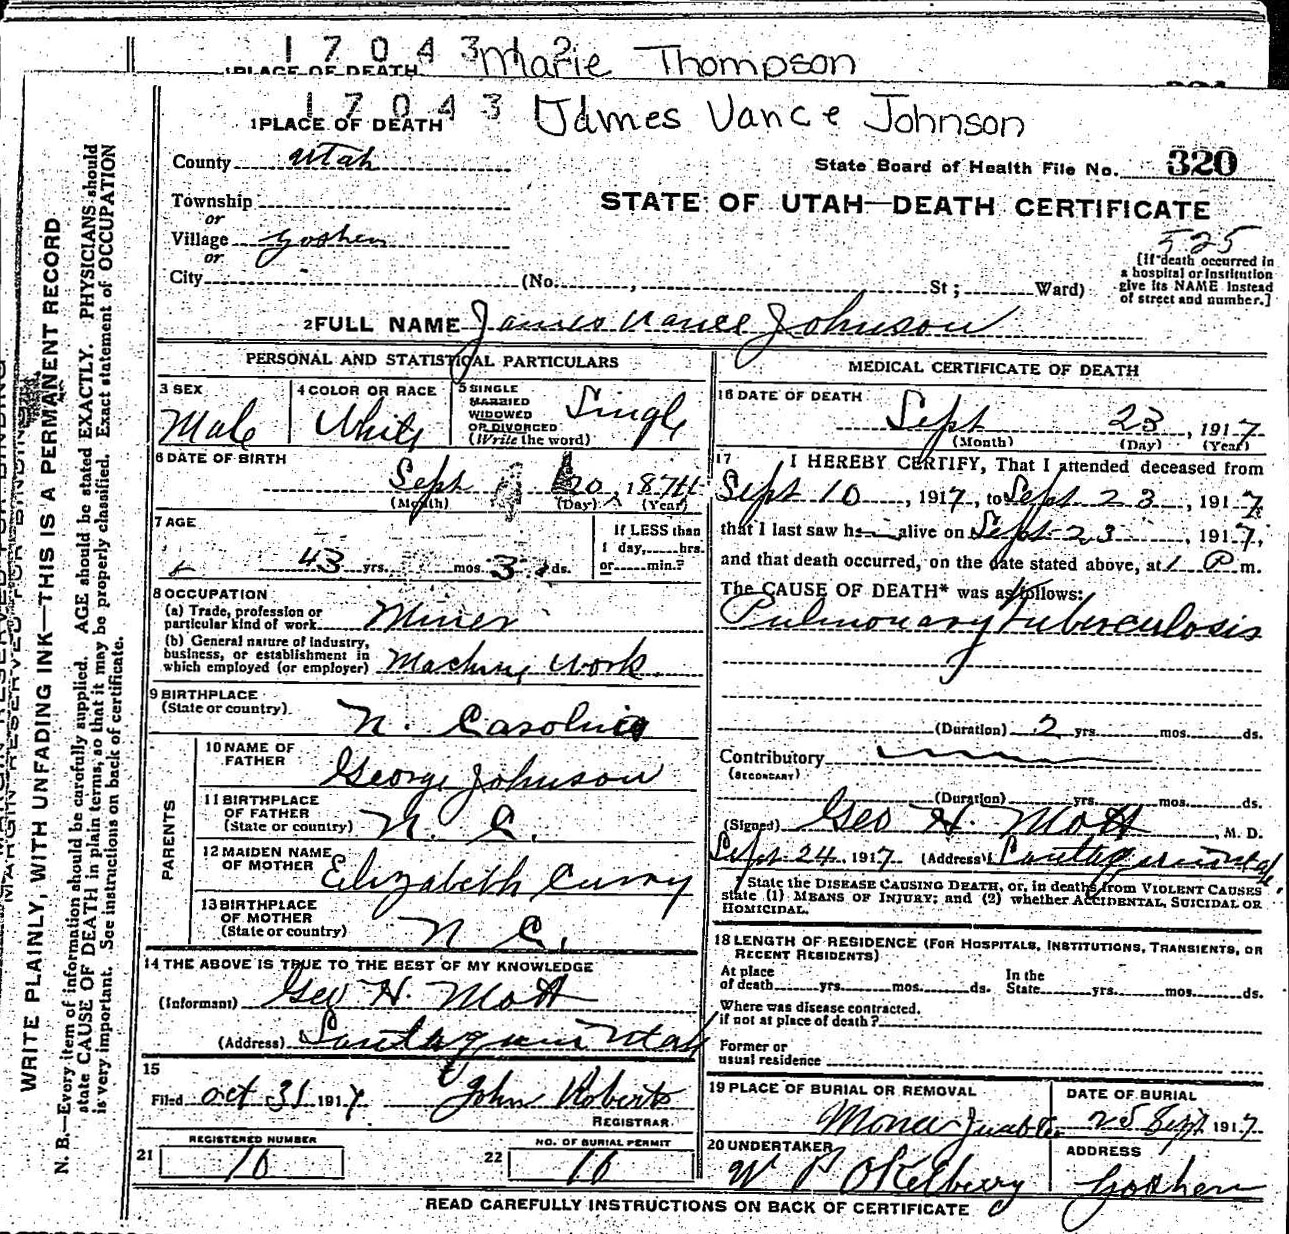 1 7 0 4 3 2
1PLACE OF DEATH Marie Thompson
1 7 0 4 3 James Vance Johnson
1PLACE OF DEATH
County Utah
State Board of Health File No. 320
Township
or
STATE OF UTAH—DEATH CERTIFICATE
Village Goshen
or
525
City (No. , St; Ward)
[If death occurred in
a hospital or Institution
give its NAME Instead
of street and number.]
2FULL NAME James Vance Johnson
PERSONAL AND STATISTICAL PARTICULARS
3 SEX
Male
4 COLOR OR RACE
White
5 SINGLE
MARRIED
WIDOWED
OR DIVORCED
(Write the word)
Single
6 DATE OF BIRTH
Sept 20, 1874
(Month) (Day) (Year)
7 AGE
43 yrs. mos. 3 ds.
If LESS than
1 day, hrs.
or min.?
8 OCCUPATION
(a) Trade, profession or
particular kind of work Miner
(b) General nature of industry,
business, or establishment in
which employed (or employer) Machine work
9 BIRTHPLACE
(State or country) N. Carolina
PARENTS
10 NAME OF
FATHER George Johnson
11 BIRTHPLACE
OF FATHER
(State or country) N. C.
12 MAIDEN NAME
OF MOTHER Elizabeth Curry
13 BIRTHPLACE
OF MOTHER
(State or country) N C.
14 THE ABOVE IS TRUE TO THE BEST OF MY KNOWLEDGE
(Informant) Geo H. Mott
(Address) Santaquin Utah
15
Filed Oct 31 1917 John Roberts
REGISTRAR
REGISTERED NUMBER
21 10
NO. OF BURIAL PERMIT
22 10
MEDICAL CERTIFICATE OF DEATH
16 DATE OF DEATH
Sept 23, 1917
(Month) (Day) (Year)
17 I HEREBY CERTIFY, That I attended deceased from
Sept 10, 1917, to Sept 23, 1917,
that I last saw h alive on Sept 23, 1917,
and that death occurred, on the date stated above, at 1 P m.
The CAUSE OF DEATH* was as follows:
Pulmonary Tuberculosis
(Duration) 2 yrs. mos. ds.
Contributory
(SECONDARY)
(Duration) yrs. mos. ds.
(Signed) Geo H. Mott, M. D.
Sept 24, 1917 (Address) Santaquin Utah
* State the DISEASE CAUSING DEATH, or, in deaths from VIOLENT CAUSES
state (1) MEANS OF INJURY; and (2) whether ACCIDENTAL, SUICIDAL OR
HOMICIDAL.
18 LENGTH OF RESIDENCE (FOR HOSPITALS, INSTITUTIONS, TRANSIENTS, OR
RECENT RESIDENTS)
At place
of death yrs. mos. ds.
In the
State yrs. mos. ds.
Where was disease contracted,
if not at place of death?
Former or
usual residence
19 PLACE OF BURIAL OR REMOVAL
Mona Juab Co
DATE OF BURIAL
25 Sept 1917
20 UNDERTAKER
W P Okelberry
ADDRESS
Goshen
READ CAREFULLY INSTRUCTIONS ON BACK OF CERTIFICATE
WRITE PLAINLY, WITH UNFADING INK—THIS IS A PERMANENT RECORD
N. B.—Every item of information should be carefully supplied. AGE should be stated EXACTLY. PHYSICIANS should
state CAUSE OF DEATH in plain terms, so that it may be properly classified. Exact statement of OCCUPATION
is very important. See instructions on back of certificate.
MARGIN RESERVED FOR BINDING